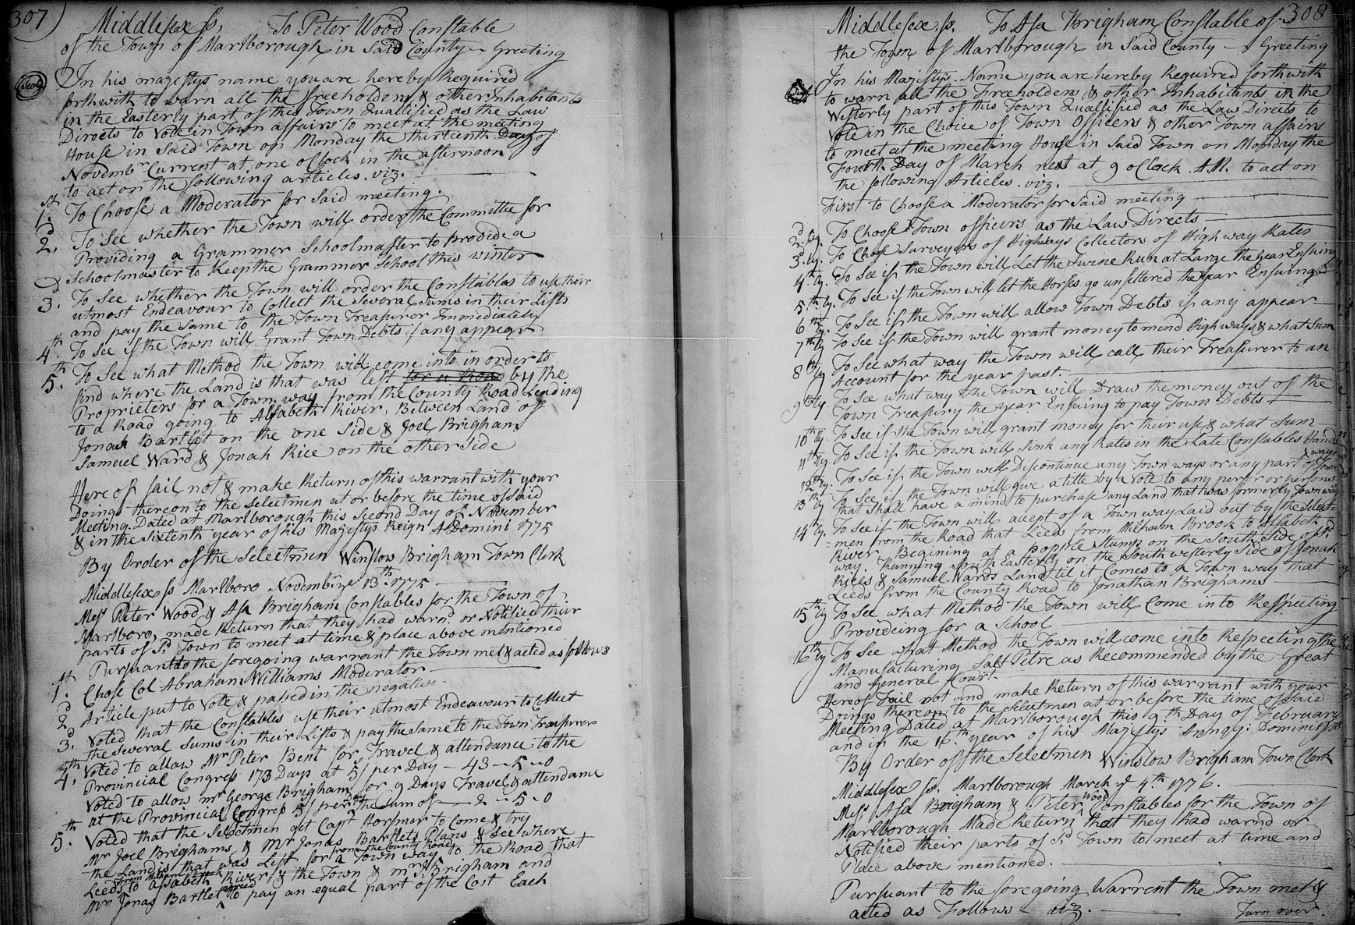 307
Middlesex ss, To Peter Wood Constable
of the Town of Marlborough, in Said County - Greeting
In his majestys name you are hereby Required
forthwith to warn all the freeholders & other Inhabitants
in the Easterly part of this Town Qualified as the Law
Directs to Vote in Town affairs to meet at the meeting
House in Said Town on Monday the thirteenth Day of
Novembr Current at one oClock in the afternoon
to act on the following articles. viz.
1st. To Choose a Moderator for Said meeting.
2d. To See whether the Town will order the Committee for
Providing a Grammer Schoolmaster to provide a
Schoolmaster to Keep the Grammer School this winter
3d. To See whether the Town will order the Constables to use their
utmost Endeavour to Collect the Several Sums in their Lists
and pay the Same to the Town Treasurer Immediately
4th. To See if the Town will grant Town Debts if any appear
5th. To See what Method the Town will come into in order to
find where the Land is that was left for a Road by the
Proprieters for a Town way from the County Road Leading
to a Road going to Assabeth River, Between Land of
Jonah Bartlet on the one Side & Joel Brigham
Samuel Ward & Jonah Rice on the other Side
Here of fail not & make Return of this warrant with your
Doings thereon to the Selectmen at or before the time of Said
Meeting. Dated at Marlborough this Second Day of November
& in the Sixteenth year of his Majestys Reign A Domini 1775
By Order of the Selectmen Winslow Brigham Town Clerk
Middlesex ss Marlboro Novembr ye 13th 1775
Mesr Peter Wood & Asa Brigham Constables for the Town of
Marlboro, made Return that they had warnd or Notified their
parts of Sd Town to meet at time & place above mentioned
Pursuant to the foregoing warrant the Town met & acted as follows
1st. Chose Col Abraham Williams Moderator
2d Article put to Vote & passed in the negative
3d. Voted that the Constables use their utmost Endeavour to Collect
the several Sums in their Lists & pay the Same to the Town Treasurer
4th. Voted to allow Mr Peter Bent for Travel & attendance to the
Provincial Congress 173 Days at 5/ per Day - 43 - 5 - 0
Voted to allow mr George Brigham for 9 Days Travel & attendance
at the Provincial Congress 5/ per Day the Sum of - 2 - 5 - 0
5th. Voted that the Selectmen get Capt Hosmer to Come & try
Mr Joel Brighams, & Mr Jonas Bartlets Plans & See where
the Land is that was Left for a Town way from the County Road to the Road that
Leeds to Assabeth River & the Town & mr Js Brigham and
Mr Jonas Bartlet to pay an equal part of the Cost Each
308
Middlesex ss. To Asa Brigham Constable of
the Town of Marlborough in Said County - Greeting
In his Majestys Name you are hereby Required forthwith
to warn all the Freeholders & other Inhabitants in the
Westerly part of this Town Qualified as the Law Directs to
Vote in the Choice of Town Officers & other Town affairs
to meet at the meeting House in Said Town on Monday the
Fourth Day of March next at 9 oClock AM. to act on
the following Articles. viz.
First to Choose a Moderator for Said meeting
2dly. To Choose Town officers as the Law Directs
3dly. To Chose Surveyors of Highways Collectors of Highway Rates
4thly. To See if the Town will Let the Swine Run at Large the year Ensuing
5thly. To See if the Town will let the Horses go unfettered the year Ensuing
6thly. To See if the Town will allow Town Debts if any appear
7thly. To See if the Town will grant money to mend Highways & what Sum
8thly. To See what way the Town will call their Treasurer to an
Account for the year past.
9thly. To See what way the Town will Draw the money out of the
Town Treasury the year Ensuing to pay Town Debts
10thly. To See if the Town will grant money for their use & what Sum
11thly. To See if the Town will Sink any Rates in the Late Constables Hands
12thly. To See if the Town will Discontinue any Town ways or any part of Town ways
13thly. To See if the Town will give a title by a Vote to any person or persons
that Shall have a mind to purchase any Land that was formerly Town way
14thly. To See if the Town will accept of a Town way Laid out by the Select-
men from the Road that Leeds from Milham Brook to Assabeth
River. Begining at a Popple Stump on the South Side of Sd
way. Running South Easterly on the South westerly Side of Jonah
Rices & Samuel Wards Land til it Comes to a Town way that
Leeds from the County Road to Jonathan Brighams
15thly To See what Method the Town will Come into Respecting
Provideing for a School
16thly To See what Method the Town will come into Respecting the
Manufacturing Salt Petre as Recommended by the Great
and General Court.
Hereof Fail not and make Return of this warrant with your
Doings thereon to the Selectmen at or before the time of Said
Meeting Dated at Marlborough this 9th Day of February
and in the 16th year of his Majestys
By Order of the Selectmen Winslow Brigham Town Clerk
Middlesex ss. Marlborough March ye 4th 1776.
Mesr Asa Brigham & Peter Wood Constables for the Town of
Marlborough Made Return that they had warnd or
Notified their parts of Sd Town to meet at time and
Place above mentioned.
Pursuant to the foregoing Warrent the Town met &
acted as Follows - viz.
Turn over.